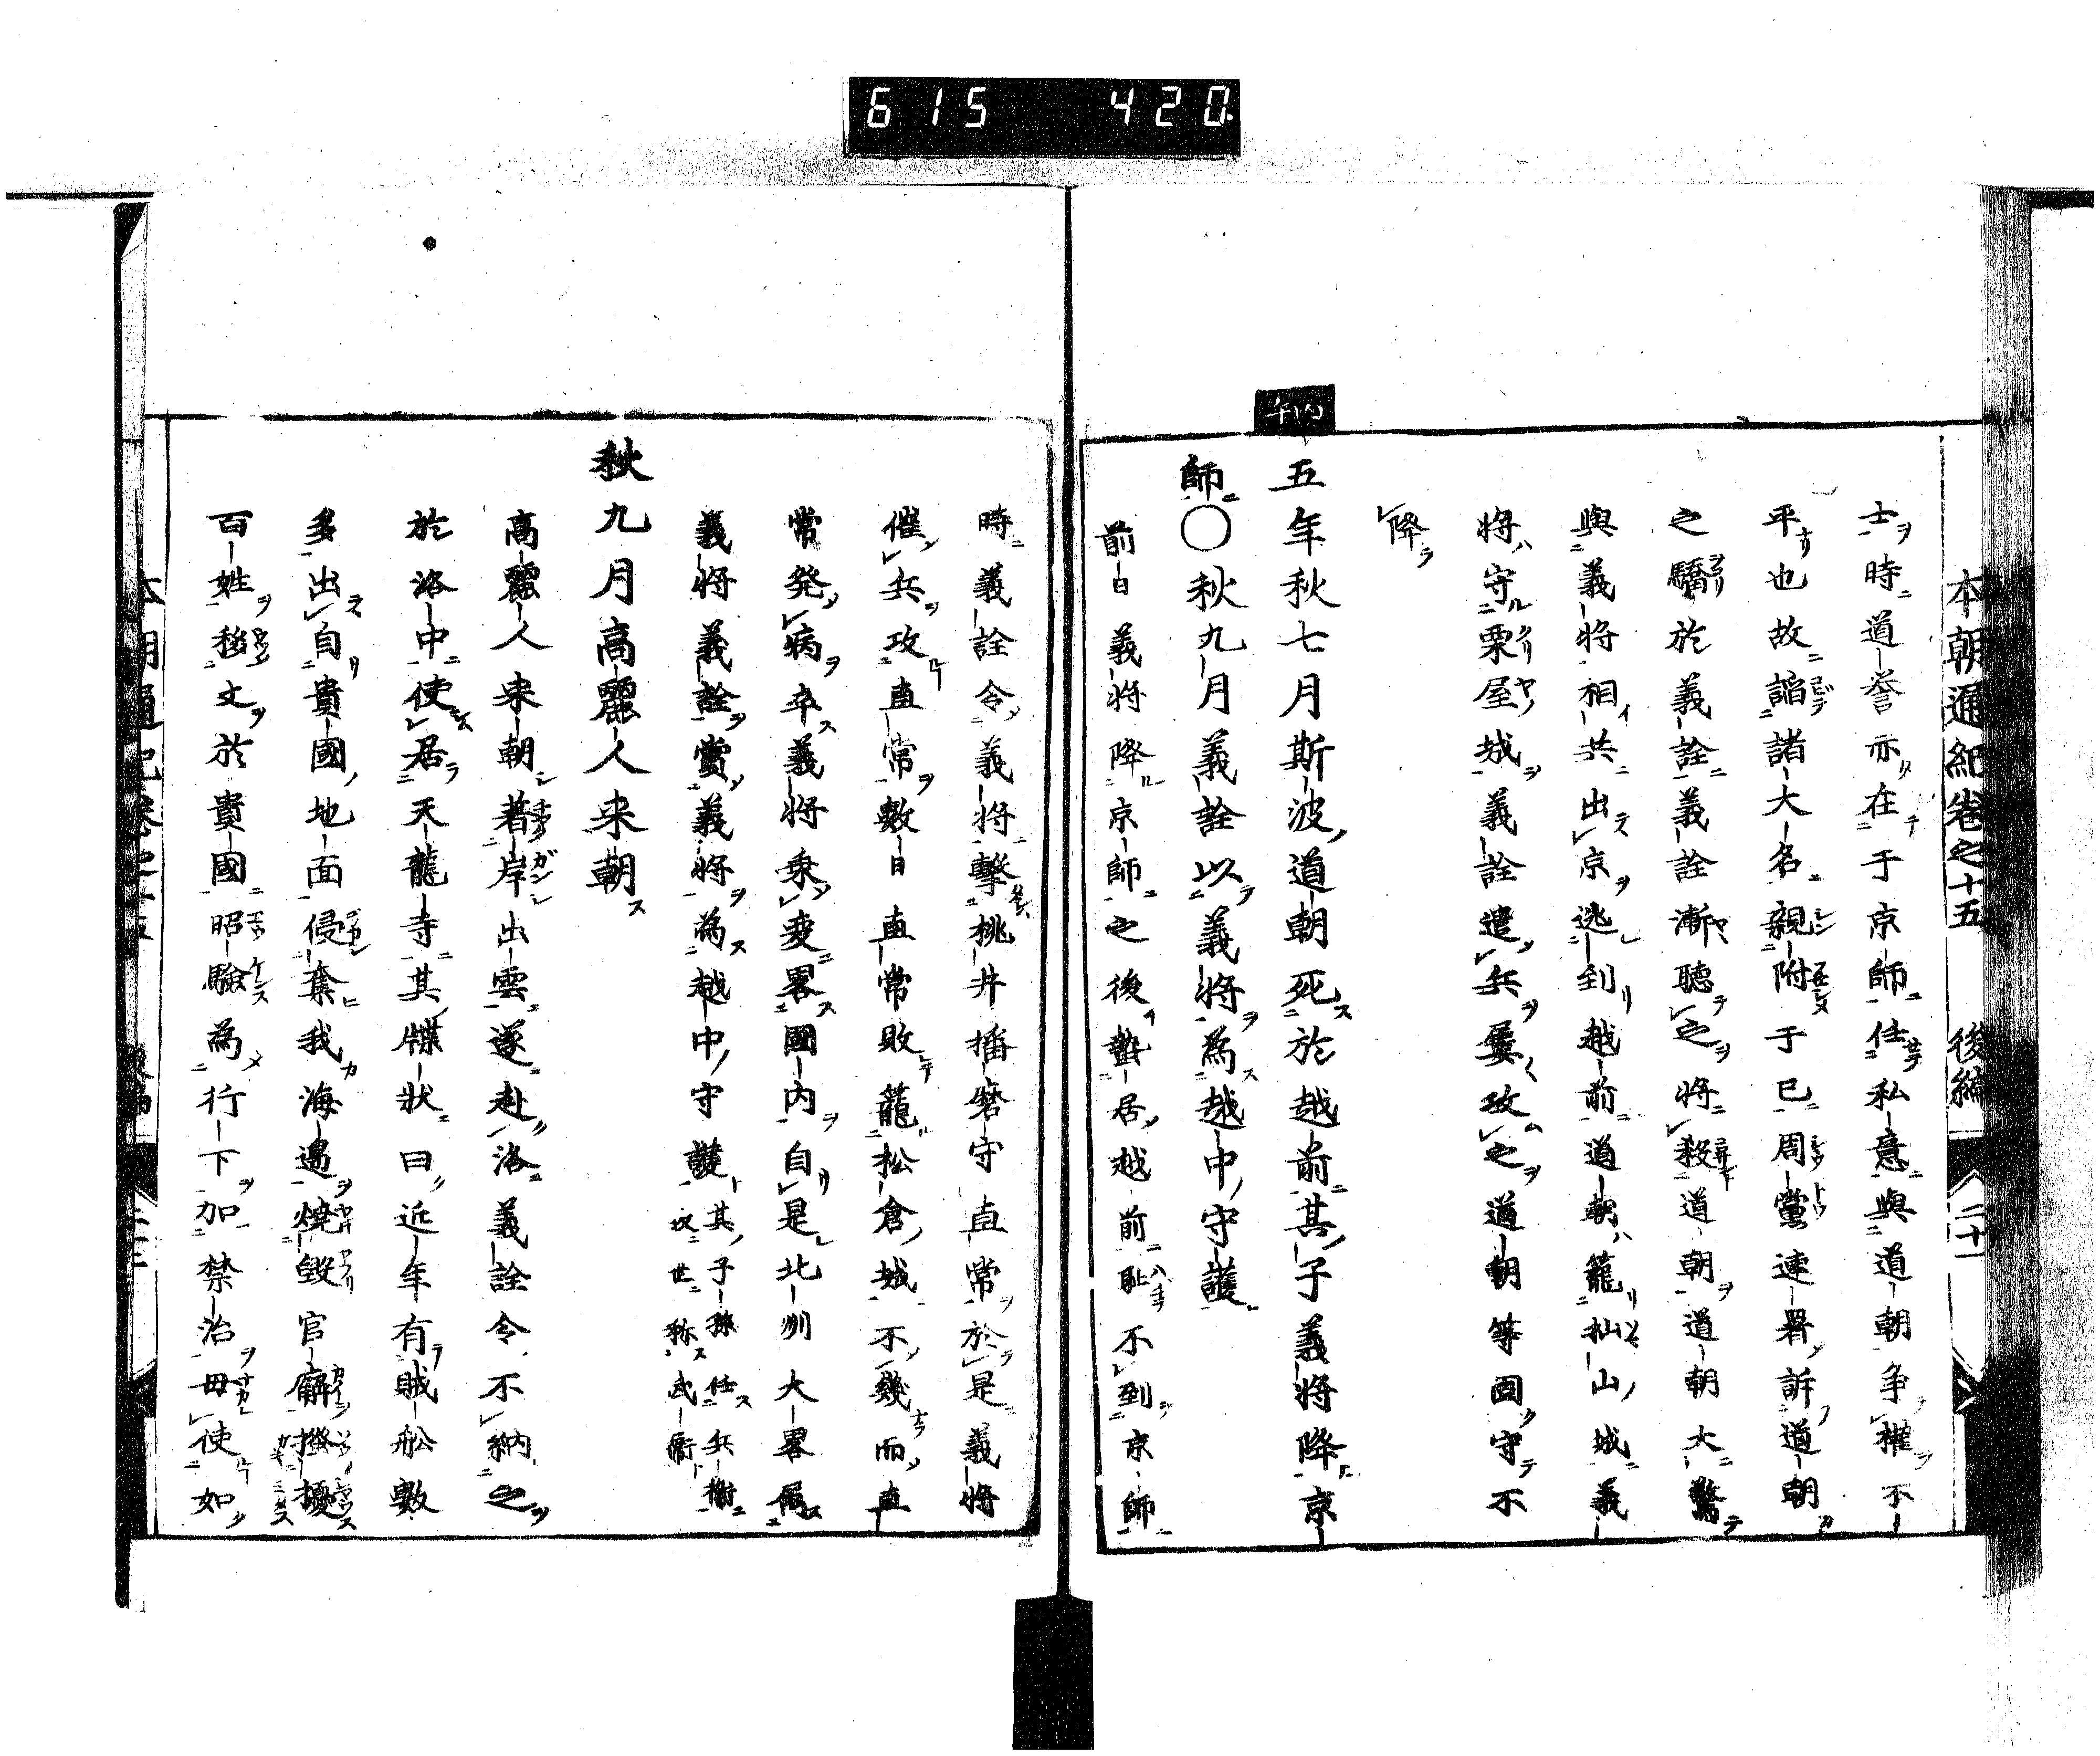 615 420
本朝通紀卷之十五 後編 二十一
士時道譽亦在于京師任私意與道朝争權不
平也故謟諸大名親附于已周黨連署訴道朝
之驕於義詮義詮漸聴之將殺道朝道朝大驚
與義将相共出京逃到越前道朝籠杣山城義
将守栗屋城義詮遣兵屡攻之道朝等固守不
降
五年秋七月斯波道朝死於越前其子義将降京
師〇秋九月義詮以義将為越中守護
前日義将降京師之後蟄居越前耻不到京師
時義詮令義将擊桃井播磨守直常於是義将
催兵攻直常數日直常敗籠松倉城不幾而直
常発病卒義将乗変畧國内自是北州大畧属
義将義詮賞義将為越中守護其子孫任兵衛
世称武衛
秋九月高麗人来朝
高麗人来朝著岸出雲遂赴洛義詮令不納之
於洛中使居天龍寺其牒状曰近年有賊舩數
多出自貴國地面侵奪我海邉燒毀官廨搔擾
百姓移文於貴國昭驗為行下加禁治毋使如